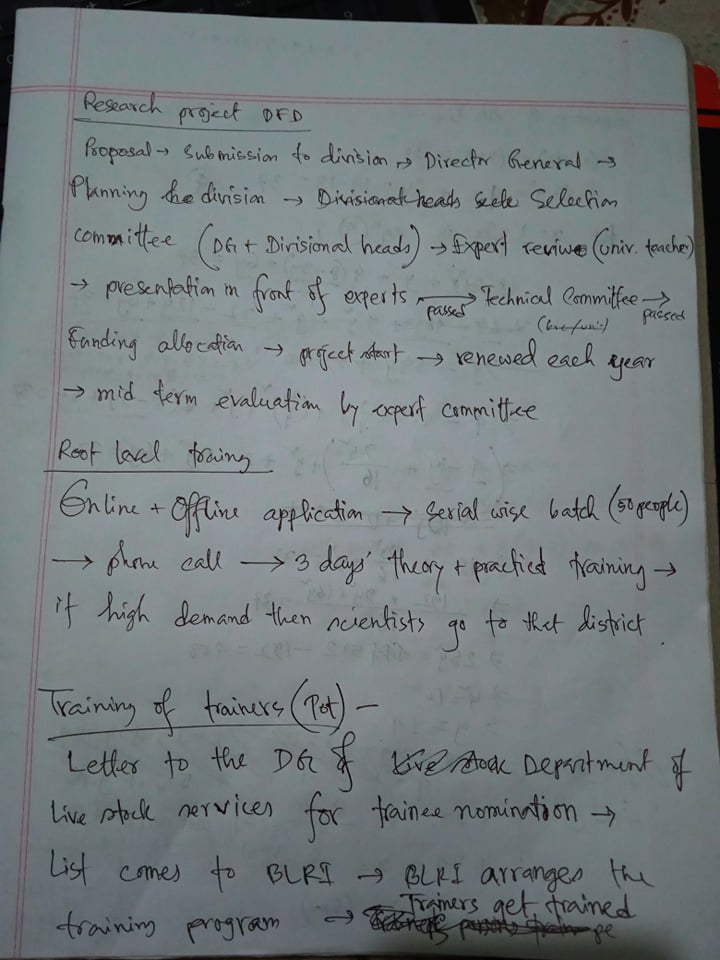 Research project DFD
Proposal → Submission to division → Director General →
Planning the division → Divisional heads Selection
committee (DG + Divisional heads) → Expert reviwe (univ. teacher)
→ presentation in front of experts passed → Technical Committee → passed
Funding allocation → project start → renewed each year
→ mid term evaluation by expert committee
Root level traing
Online + Offline application → Serial wise batch (50 people)
→ phone call → 3 days' theory + practicel training →
if high demand then scientists go to that district.
Training of trainers (Tot) –
Letter to the DG of Live stock Department of
Live stock services for trainee nomination →
List comes to BLRI → BLRI arranges the
training program → Trainers get trained